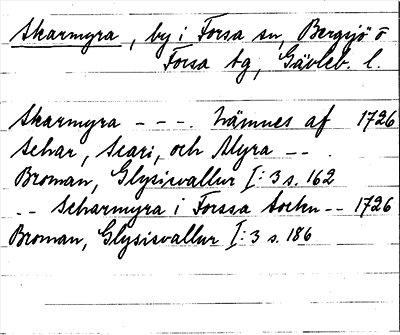 Skarmyra, by i Forsa sn, Bergsjö o
Forsa tg, Gävleb. l.
Skarmyra - - -. Nämnes af 1726
Schar, Scari, och Myra - - .
Broman, Glysisvallur I: 3 s. 162
- - Scharmyra i Forssa Sockn - - 1726
Broman, Glysisvallur I: 3 s. 186